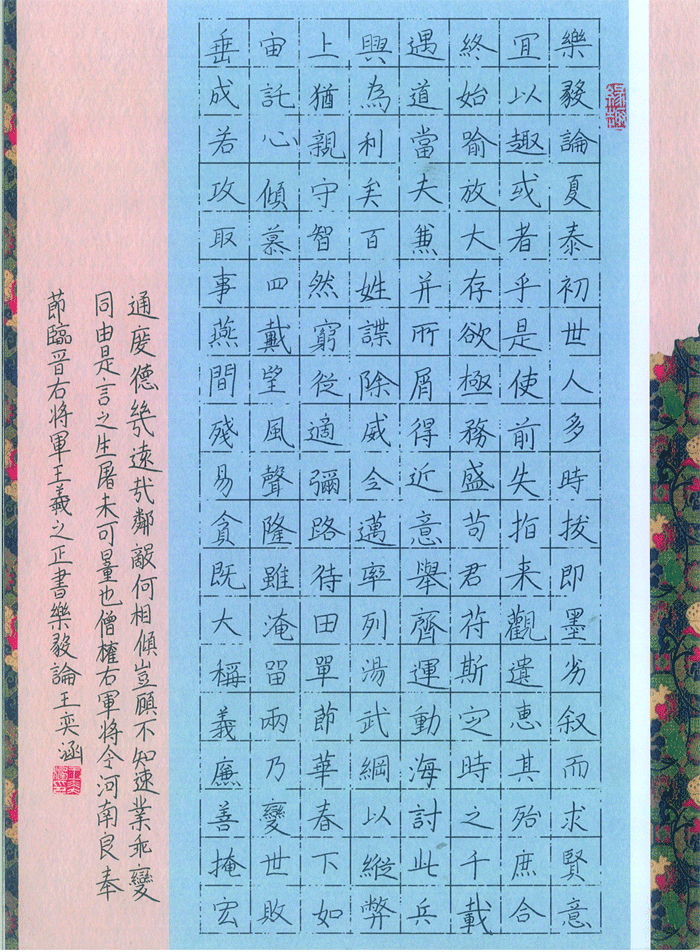 樂毅論夏泰初世人多時拔即墨劣叙而求賢意
宜以趣或者乎是使前失指来觀遺惠其殆庶合
終始喻放大存欲極務盛苟君苻斯定時之千載
遇道當夫兼并所屑得近意舉齊運動海討此兵
興為利矣百姓諜除威令邁率列湯武綱以縱弊
上猶親守智然窮從適彌路待田單節華春下如
宙託心傾慕四戴望風聲隆雖淹留兩乃變世敗
垂成若攻取事燕間殘易貪既大稱義廉善掩宏
通度德幾遠哉鄰敵何相傾豈願不知速業乖變
同由是言之生屠未可量也僧權右軍將令河南良奉
節臨晉右将軍王羲之正書樂毅論王奕涵